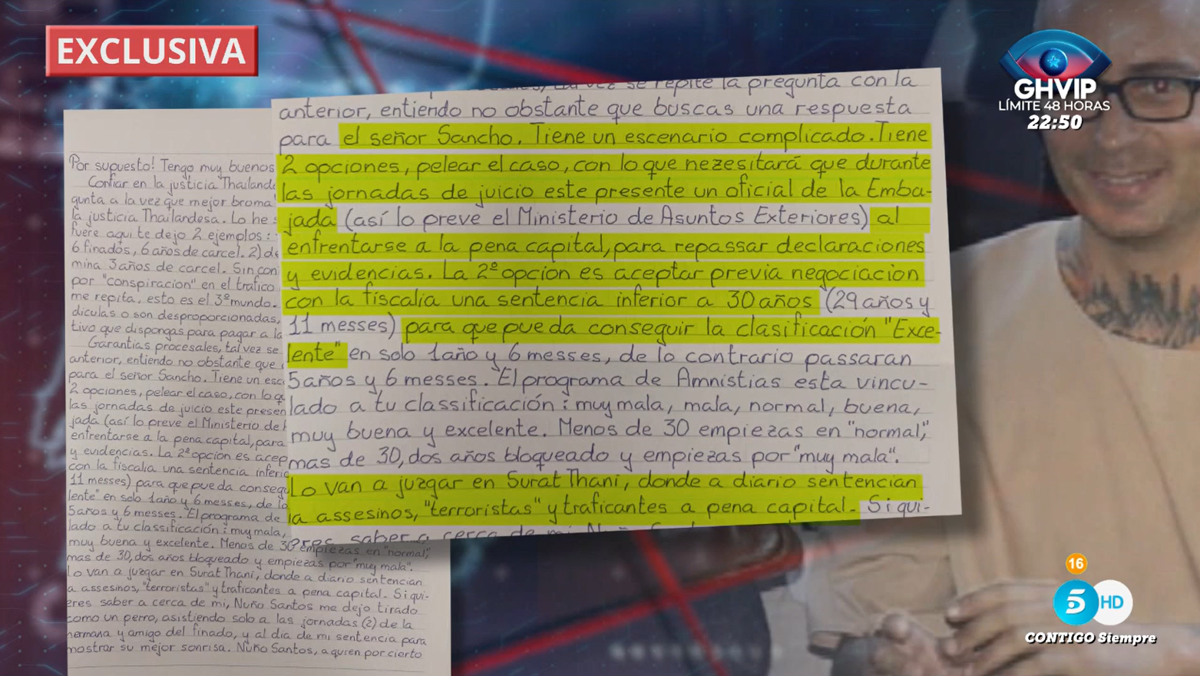 EXCLUSIVA
GHVIP
LÍMITE 48 HORAS
22:50
se repite la pregunta con la
anterior, entiendo no obstante que buscas una respuesta
para el señor Sancho. Tiene un escenario complicado. Tiene
2 opciones, pelear el caso, con lo que nezesitará que durante
las jornadas de juicio este presente un oficial de la Emba-
jada (así lo preve el Ministerio de Asuntos Exteriores) al
enfrentarse a la pena capital, para repassar declaraciones
y evidencias. La 2ª opcion es aceptar previa negociacion
con la fiscalia una sentencia inferior a 30 años (29 años y
11 messes) para que pueda conseguir la clasificación "Exce-
lente" en solo 1 año y 6 messes, de lo contrario passaran
5 años y 6 messes. El programa de Amnistias esta vincu-
lado a tu classificación: muy mala, mala, normal, buena,
muy buena y excelente. Menos de 30 empiezas en "normal",
mas de 30, dos años bloqueado y empiezas por "muy mala".
Lo van a juzgar en Surat Thani, donde a diario sentencian
a assesinos, "terroristas" y traficantes a pena capital. Si qui-
eres saber a cerca de mi, Nuño Santos
Por supuesto! Tengo muy buenos
Confiar en la justicia Thailand
gunta a la vez que mejor broma
la justicia Thailandesa. Lo he
fuere aqui te dejo 2 ejemplos:
6 finados, 6 años de carcel. 2) d
mina 3 años de carcel. Sin con
por "conspiracion" en el trafico
me repita, esto es el 3º mundo.
diculas o son desproporcionadas,
tivo que dispongas para pagar a la
Garantias procesales, tal vez se
anterior, entiendo no obstante que
para el señor Sancho. Tiene un esc
2 opciones, pelear el caso, con lo q
las jornadas de juicio este presen
jada (así lo preve el Ministerio de
enfrentarse a la pena capital, para
y evidencias. La 2ª opcion es acep
con la fiscalia una sentencia inferio
11 messes) para que pueda consegu
lente" en solo 1 año y 6 messes, de l
5 años y 6 messes. El programa de
lado a tu classificación: muy mala,
muy buena y excelente. Menos de 30 empiezas en "normal",
mas de 30, dos años bloqueado y empiezas por "muy mala".
Lo van a juzgar en Surat Thani, donde a diario sentencian
a assesinos, "terroristas" y traficantes a pena capital. Si qui-
eres saber a cerca de mi, Nuño Santos me dejo tirado
como un perro, asistiendo solo a las jornadas (2) de la
hermana y amigo del finado, y al dia de mi sentencia para
mostrar su mejor sonrisa. Nuño Santos, a quien por cierto
16
5 HD
CONTIGO Siempre